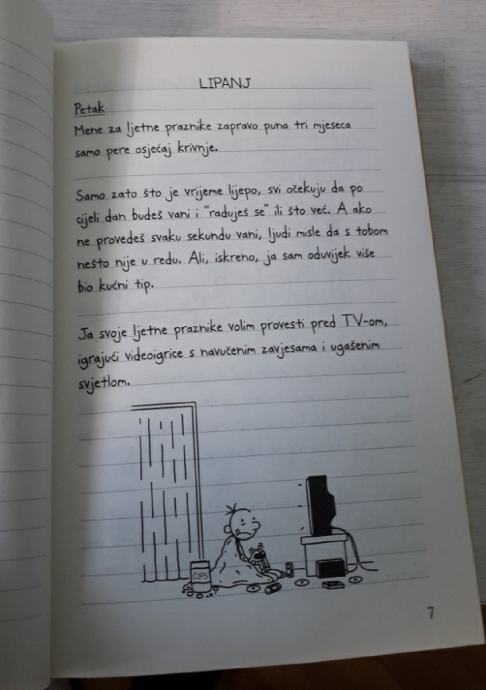 LIPANJ
Petak
Mene za ljetne praznike zapravo puna tri mjeseca
samo pere osjećaj krivnje.
Samo zato što je vrijeme lijepo, svi očekuju da po
cijeli dan budeš vani i "raduješ se" ili što već. A ako
ne provedeš svaku sekundu vani, ljudi misle da s tobom
nešto nije u redu. Ali, iskreno, ja sam oduvijek više
bio kućni tip.
Ja svoje ljetne praznike volim provesti pred TV-om,
igrajući videoigrice s navučenim zavjesama i ugašenim
svjetlom.
ČIPS
7